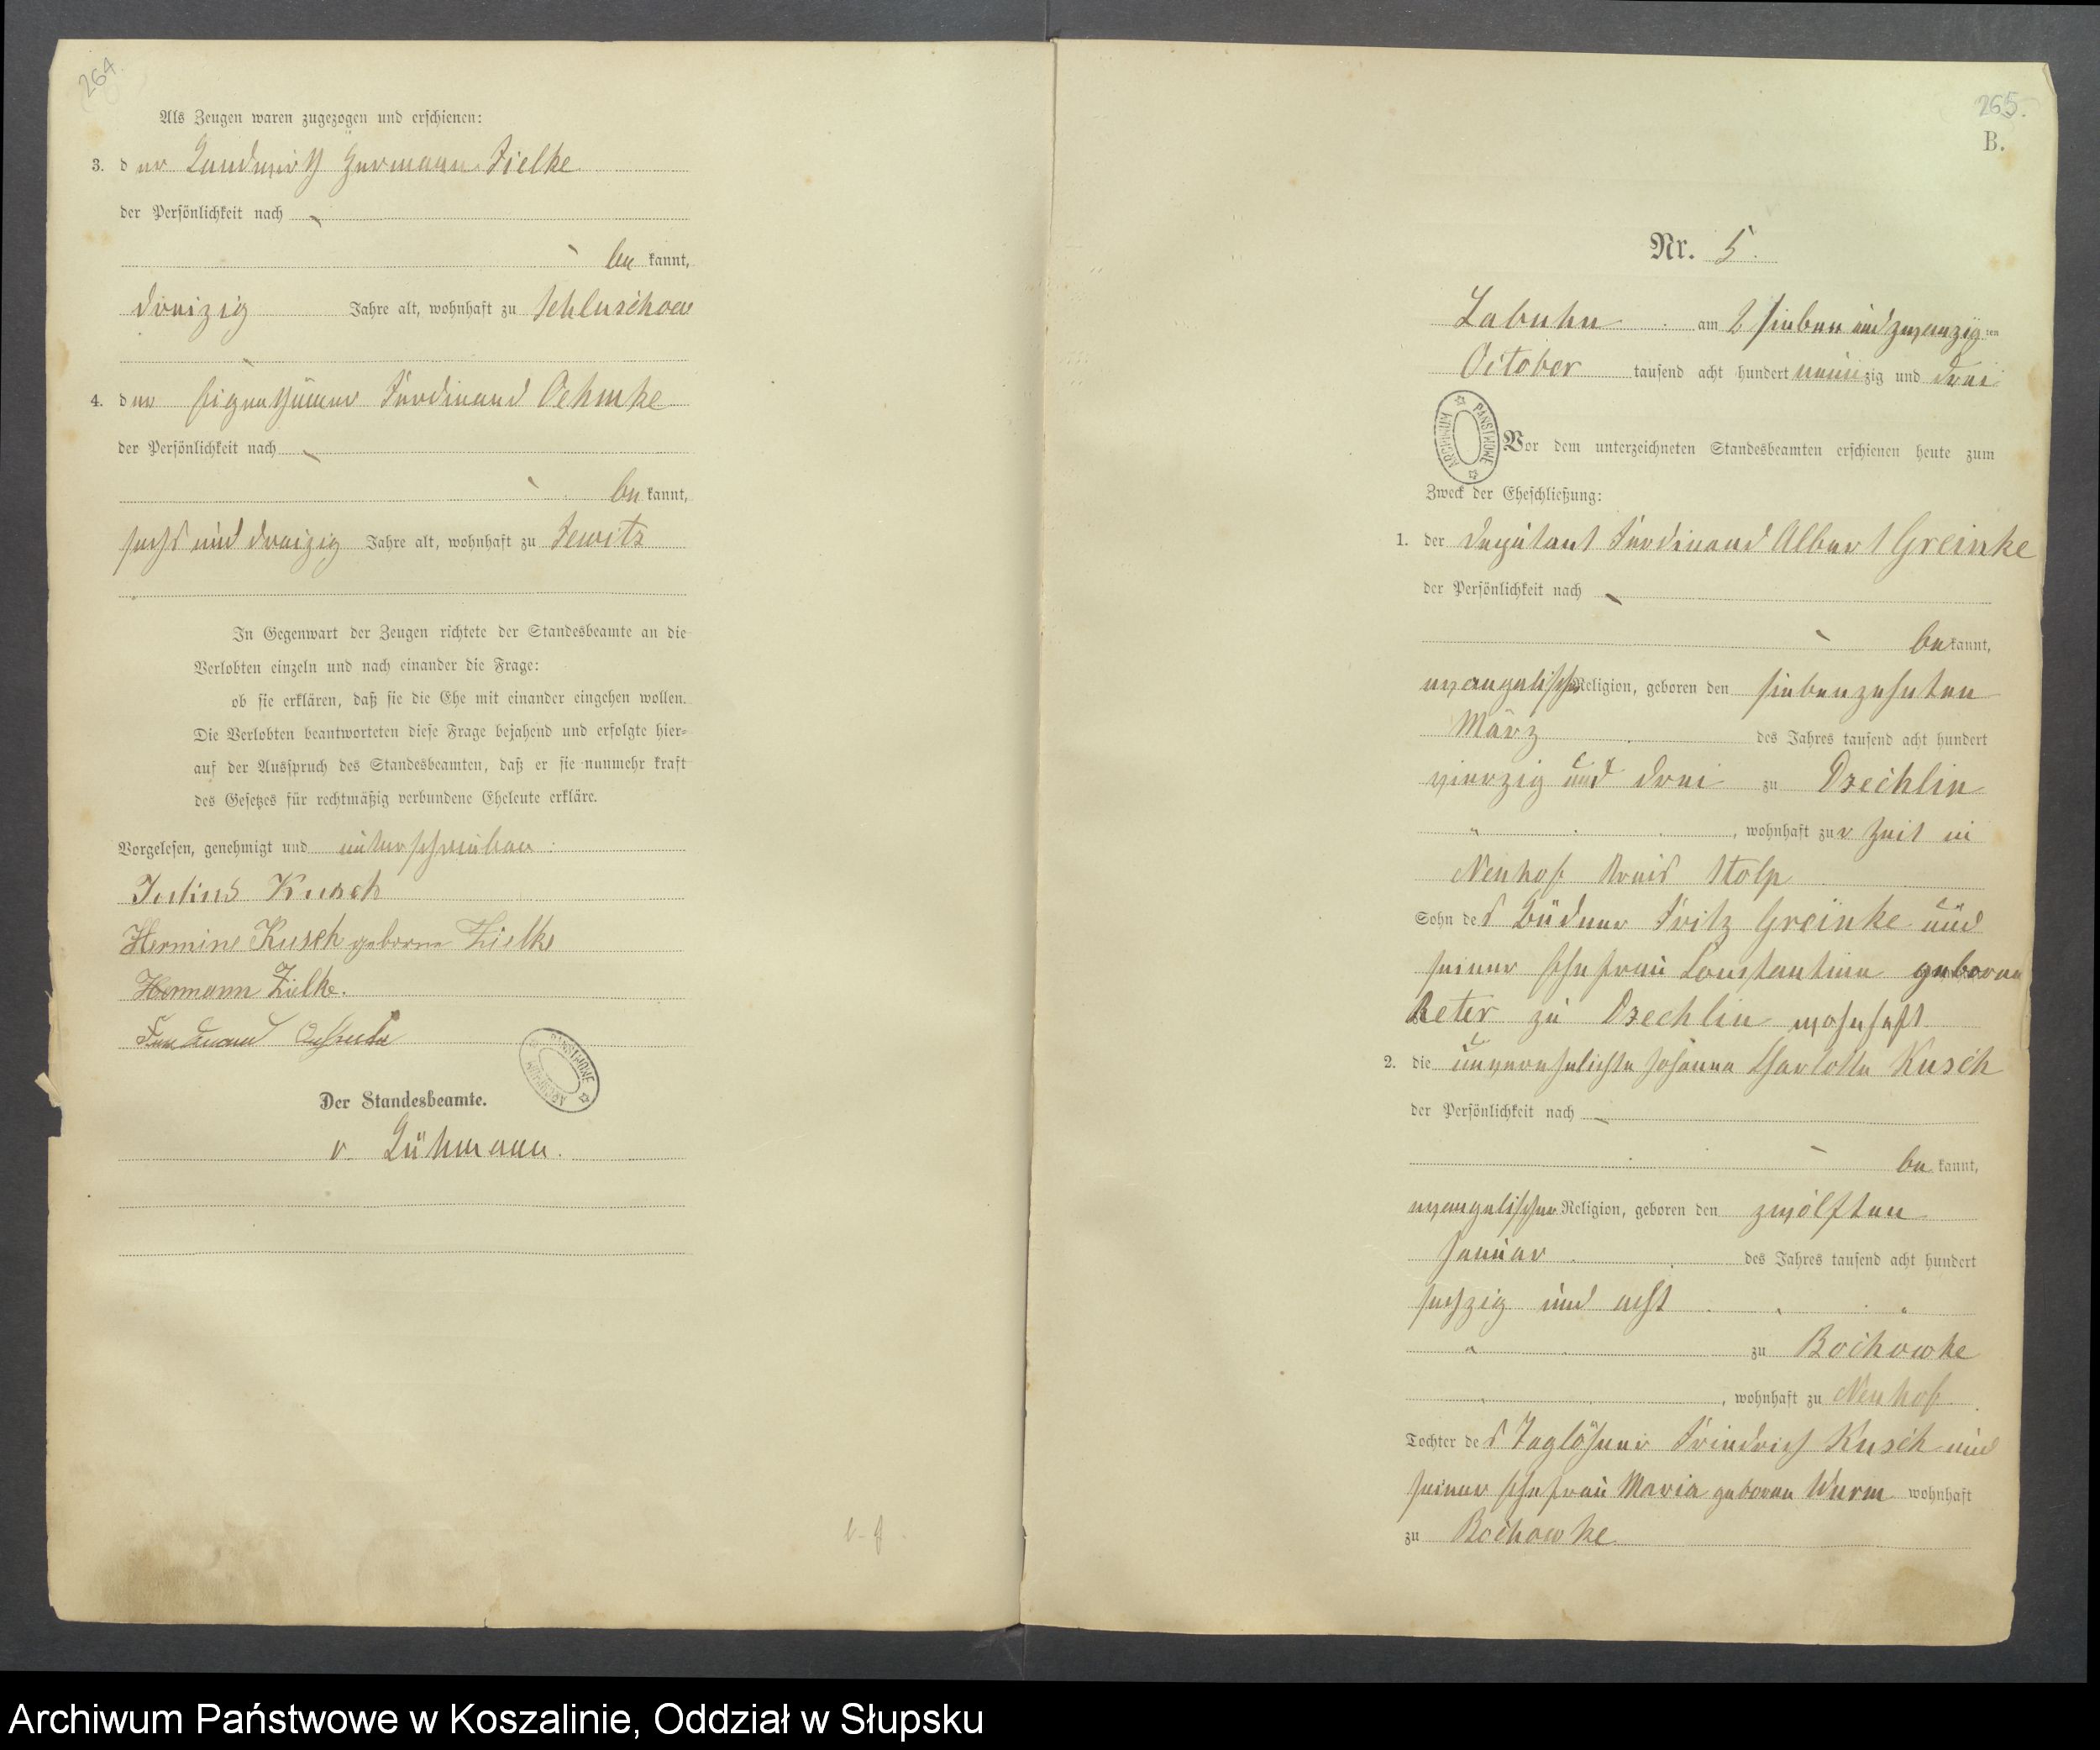 264.
Als Zeugen waren zugezogen und erschienen:
3. der Landwirth Hermann Zielke
der Persönlichkeit nach
be kannt,
dreizig Jahre alt, wohnhaft zu Schluschow
4. der Eigenthümer Ferdinand Oehmke
der Persönlichkeit nach
be kannt,
sechs und dreizig Jahre alt, wohnhaft zu Jewitz
In Gegenwart der Zeugen richtete der Standesbeamte an die
Verlobten einzeln und nach einander die Frage:
ob sie erklären, daß sie die Ehe mit einander eingehen wollen.
Die Verlobten beantworteten diese Frage bejahend und erfolgte hier-
auf der Ausspruch des Standesbeamten, daß er sie nunmehr kraft
des Gesetzes für rechtmäßig verbundene Eheleute erkläre.
Vorgelesen, genehmigt und unterschrieben
Julius Kusch
Hermine Kusch geborne Zielke
Hermann Zielke.
Ferdinand Oehmke
ARCHIWUM PAŃSTWOWE
Der Standesbeamte.
v. Lühmann.
265.
B.
Nr. 5.
Labuhn am sieben und zwanzig ten
October tausend acht hundert neunzig und drei
ARCHIWUM PAŃSTWOWE
Vor dem unterzeichneten Standesbeamten erschienen heute zum
Zweck der Eheschließung:
1. der Deputant Ferdinand Albert Greinke
der Persönlichkeit nach
be kannt,
evangelischer Religion, geboren den siebenzehnten
März des Jahres tausend acht hundert
vierzig und drei zu Dzechlin
, wohnhaft zur Zeit in
Neuhof Kreis Stolp
Sohn des Büdner Fritz Greinke und
seiner Ehefrau Constantine geboren
Reter zu Dzechlin wohnhaft
2. die unverehelichte Johanna Charlotte Kusch
der Persönlichkeit nach
be kannt,
evangelischer Religion, geboren den zwölften
Januar des Jahres tausend acht hundert
sechzig und acht
zu Bochowke
, wohnhaft zu Neuhof
Tochter des Taglöhner Friedrich Kusch und
seiner Ehefrau Maria geboren Wurm wohnhaft
zu Bochowke
Archiwum Państwowe w Koszalinie, Oddział w Słupsku